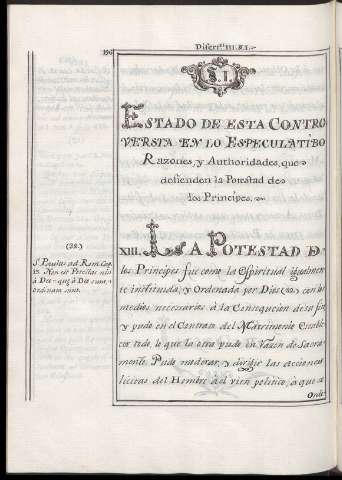 196
Discrn. III. §. I.
§. I.
ESTADO DE ESTA CONTRO
VERSIA EN LO ESPECULATIBO
Razones, y Authoridades, que
defienden la Potestad de
los Principes.
XIII. LA POTESTAD D
los Principes fue como la Espiritual igualmen
te instituida, y Ordenada por Dios (28) con los
medios necesarios à la Consequcion de su fin
y pudo en el Contrato del Matrimonio Estable
cer todo, lo que la otra pudo en Razon de Sacra
mento. Pudo moderar, y dirigir las acciones
licitas del Hombre al vien politico, à que se
Orde
(28.)
S. Paulus ad Rom. Cap.
13. Non est Potestas nisi
à Deo - quæ à Deo sunt,
ordinata sunt.